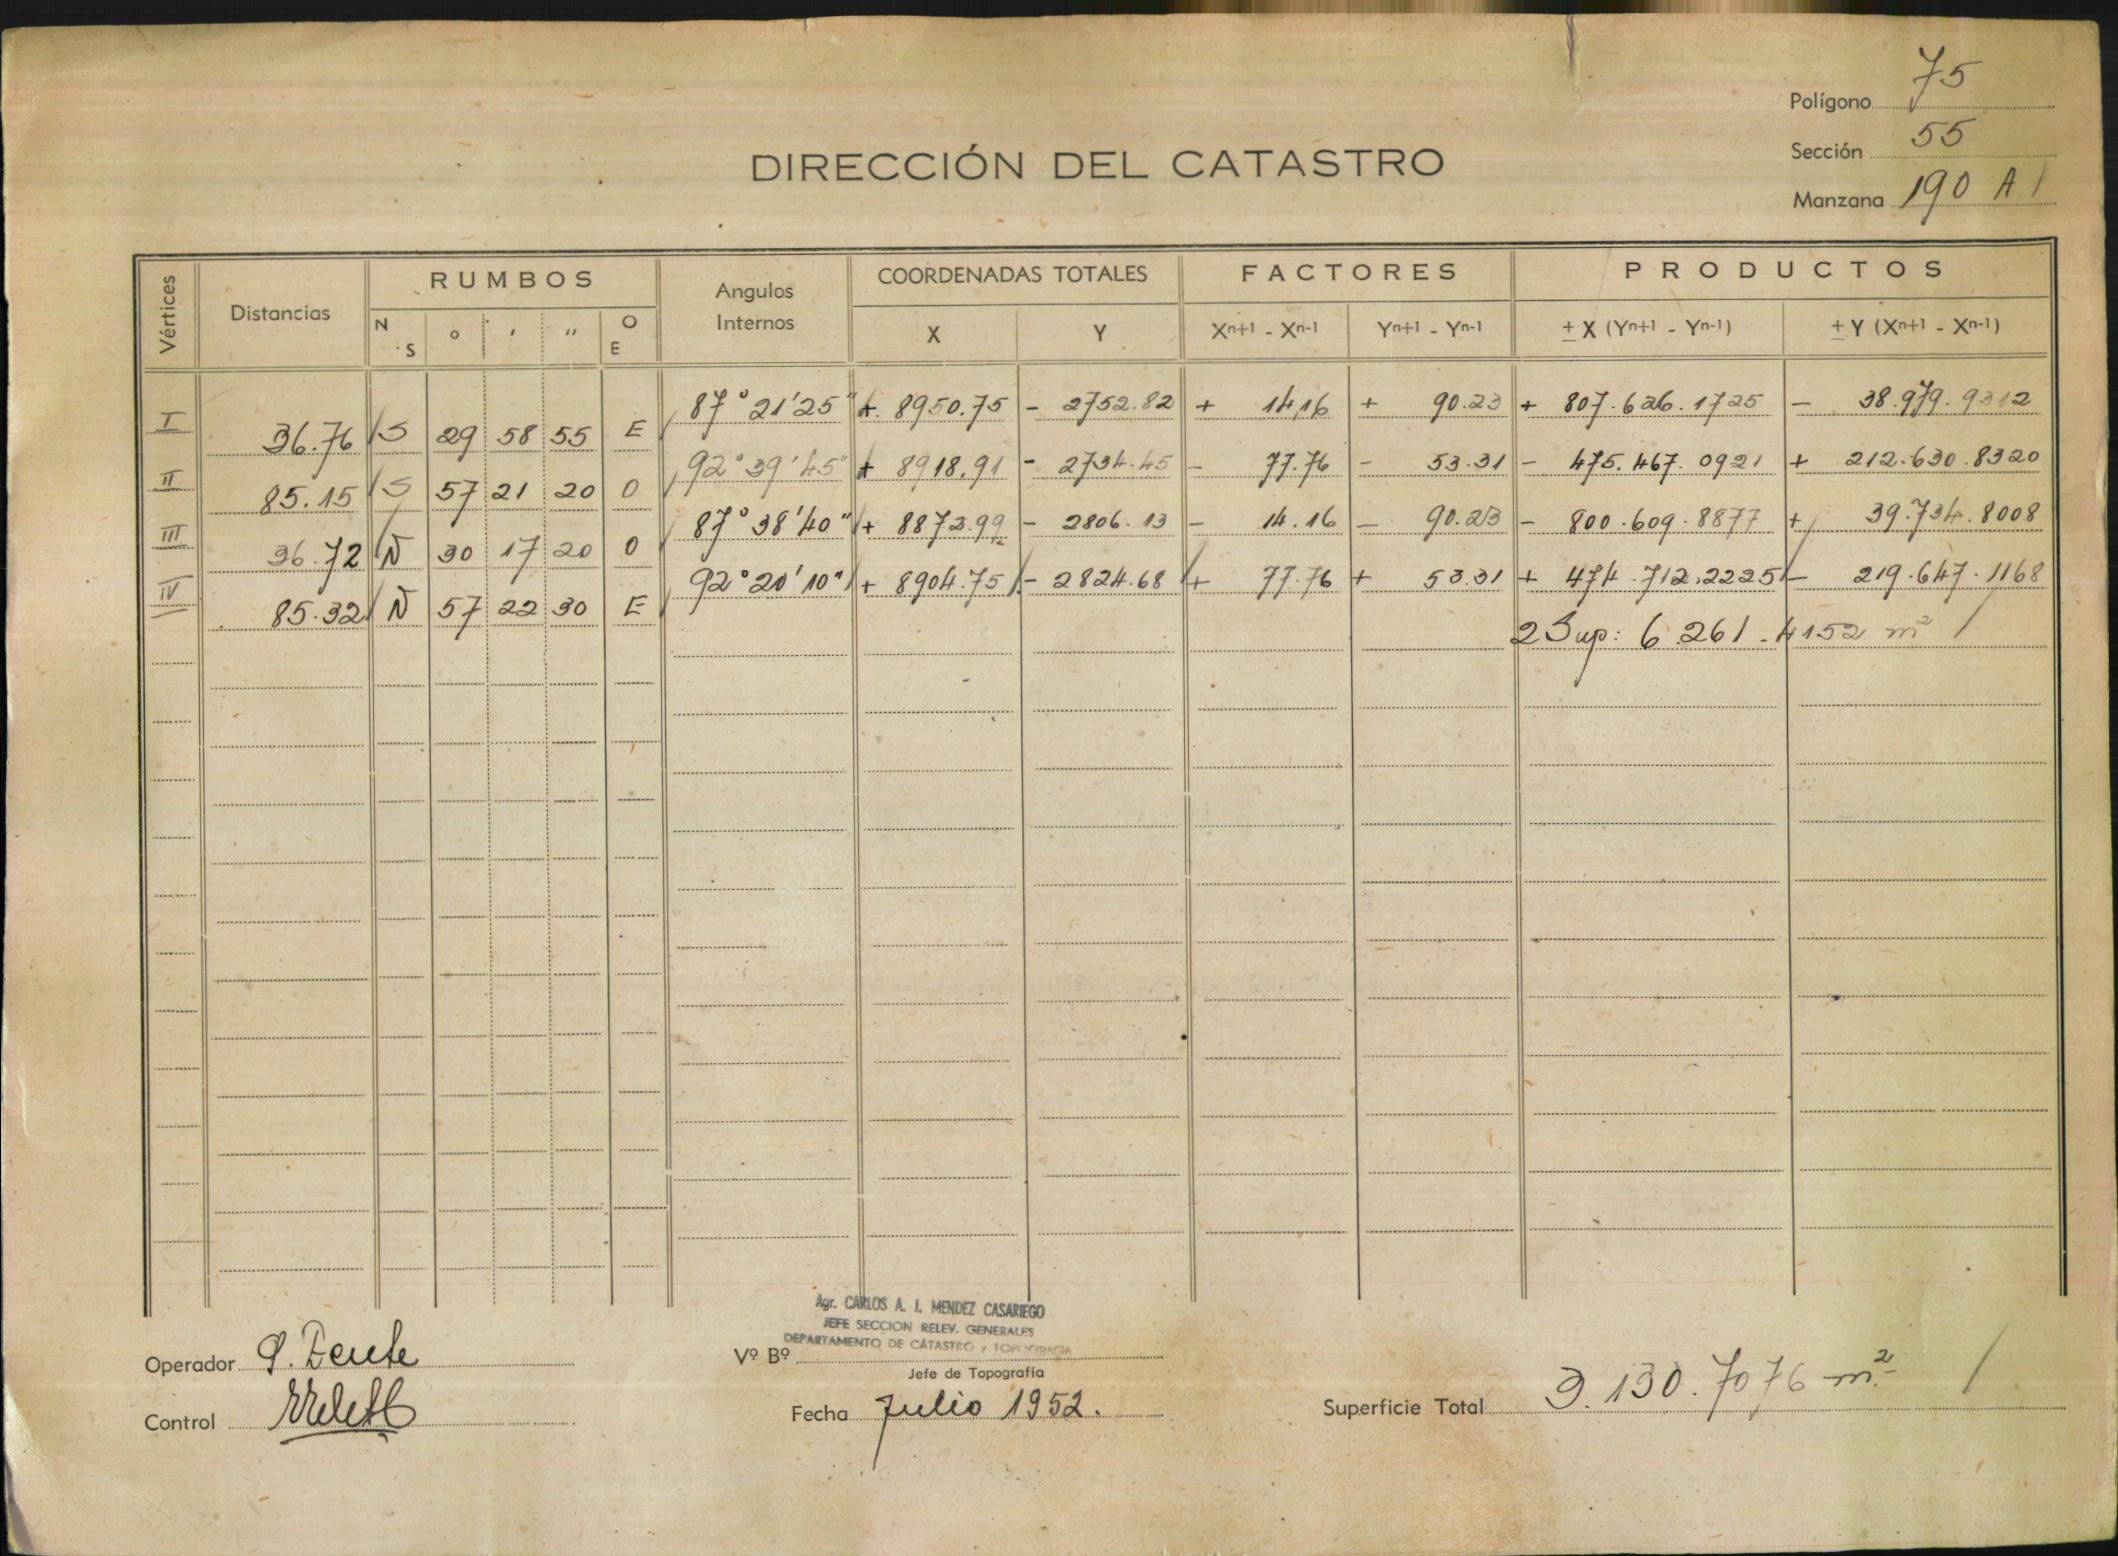 Polígono 75
Sección 55
Manzana 190 A
DIRECCIÓN DEL CATASTRO
Vértices Distancias RUMBOS Angulos Internos COORDENADAS TOTALES FACTORES PRODUCTOS
N S ° ' " O E X Y Xⁿ⁺¹ - Xⁿ⁻¹ Yⁿ⁺¹ - Yⁿ⁻¹ ± X (Yⁿ⁺¹ - Yⁿ⁻¹) ± Y (Xⁿ⁺¹ - Xⁿ⁻¹)
I 87° 21' 25" + 8950.75 - 2752.82 + 14,16 + 90.23 + 807.626.1725 - 38.979.9312
36.76 S 29 58 55 E
II 92° 39' 45" + 8918.91 - 2734.45 - 77.76 - 53.31 - 475.467.0921 + 212.630.8320
85.15 S 57 21 20 O
III 87° 38' 40" + 8873.99 - 2806.13 - 14.16 - 90.23 - 800.609.8877 + 39.734.8008
36.72 N 30 17 20 O
IV 92° 20' 10" + 8904.75 - 2824.68 + 77.76 + 53.31 + 474.712.2225 - 219.647.1168
85.32 N 57 22 30 E
2 Sup: 6.261.4152 m²
Agr. CARLOS A. I. MENDEZ CASARIEGO
JEFE SECCION RELEV. GENERALES
DEPARTAMENTO DE CATASTRO y TOPOGRAFIA
Operador
Vº Bº
Jefe de Topografía
Control
Fecha Julio 1952.
Superficie Total 3.130.7076 m²